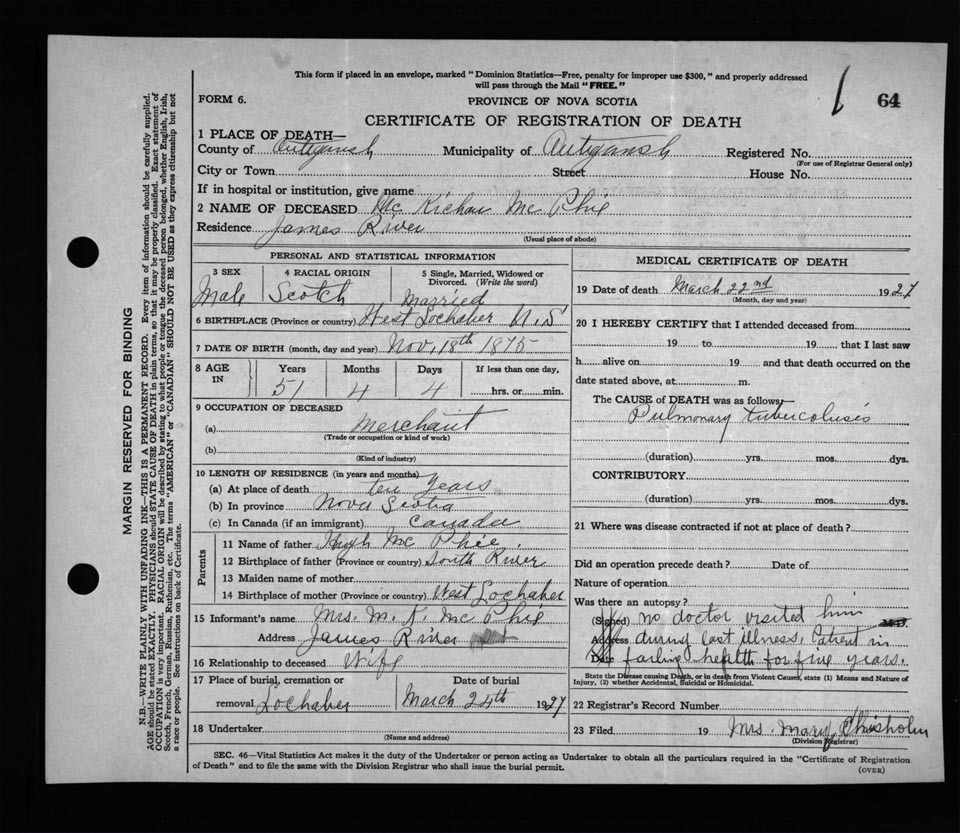 This form if placed in an envelope, marked "Dominion Statistics—Free, penalty for improper use $300," and properly addressed
will pass through the Mail "FREE."
64
FORM 6.
PROVINCE OF NOVA SCOTIA
CERTIFICATE OF REGISTRATION OF DEATH
1 PLACE OF DEATH—
County of Antigonish Municipality of Antigonish Registered No.
(For use of Registrar General only)
City or Town Street House No.
If in hospital or institution, give name
2 NAME OF DECEASED Mc Phie
Residence James River
(Usual place of abode)
PERSONAL AND STATISTICAL INFORMATION
3 SEX 4 RACIAL ORIGIN 5 Single, Married, Widowed or Divorced. (Write the word)
Male Scotch Married
6 BIRTHPLACE (Province or country) West Lochaber N.S
7 DATE OF BIRTH (month, day and year) Nov, 18th 1875
8 AGE IN Years Months Days If less than one day,
51 4 4 hrs. or min.
9 OCCUPATION OF DECEASED
(a) Merchant
(Trade or occupation or kind of work)
(b)
(Kind of industry)
10 LENGTH OF RESIDENCE (in years and months)
(a) At place of death ten years
(b) In province Nova Scotia
(c) In Canada (if an immigrant) Canada
Parents
11 Name of father Hugh Mc Phee
12 Birthplace of father (Province or country) South River
13 Maiden name of mother
14 Birthplace of mother (Province or country) West Lochaber
15 Informant's name Mrs. M. K. Mc Phie
Address James River
16 Relationship to deceased Wife
17 Place of burial, cremation or Date of burial
removal Lochaber March 24th 1927
18 Undertaker
(Name and address)
MEDICAL CERTIFICATE OF DEATH
19 Date of death March 22nd 1927
(Month, day and year)
20 I HEREBY CERTIFY that I attended deceased from
19 to 19 that I last saw
h alive on 19 and that death occurred on the
date stated above, at m.
The CAUSE of DEATH was as follows—
Pulmonary tuberculusis
(duration) yrs. mos. dys.
CONTRIBUTORY
(duration) yrs. mos. dys.
21 Where was disease contracted if not at place of death?
Did an operation precede death? Date of
Nature of operation
Was there an autopsy?
(Signed) no doctor visited him M.D.
Address during last illness. Patient in
Date failing health for five years.
State the Disease causing Death, or in death from Violent Causes, state (1) Means and Nature of
Injury, (2) whether Accidental, Suicidal or Homicidal.
22 Registrar's Record Number
23 Filed 19 Mrs. Mary Chisholm
(Division Registrar)
SEC. 46—Vital Statistics Act makes it the duty of the Undertaker or person acting as Undertaker to obtain all the particulars required in the "Certificate of Registration
of Death" and to file the same with the Division Registrar who shall issue the burial permit.
(OVER)
MARGIN RESERVED FOR BINDING
N.B.—WRITE PLAINLY WITH UNFADING INK—THIS IS A PERMANENT RECORD. Every item of information should be carefully supplied.
AGE should be stated EXACTLY. PHYSICIANS should STATE CAUSE OF DEATH in plain terms, so that it may be properly classified. Exact statement of
OCCUPATION is very important. RACIAL ORIGIN will be described by stating to what people or tongue the deceased person belonged, whether English, Irish,
Scotch, French, German, Russian, Ruthenian, etc. The terms "AMERICAN" or "CANADIAN" SHOULD NOT BE USED as they express citizenship but not
a race or people. See instructions on back of Certificate.